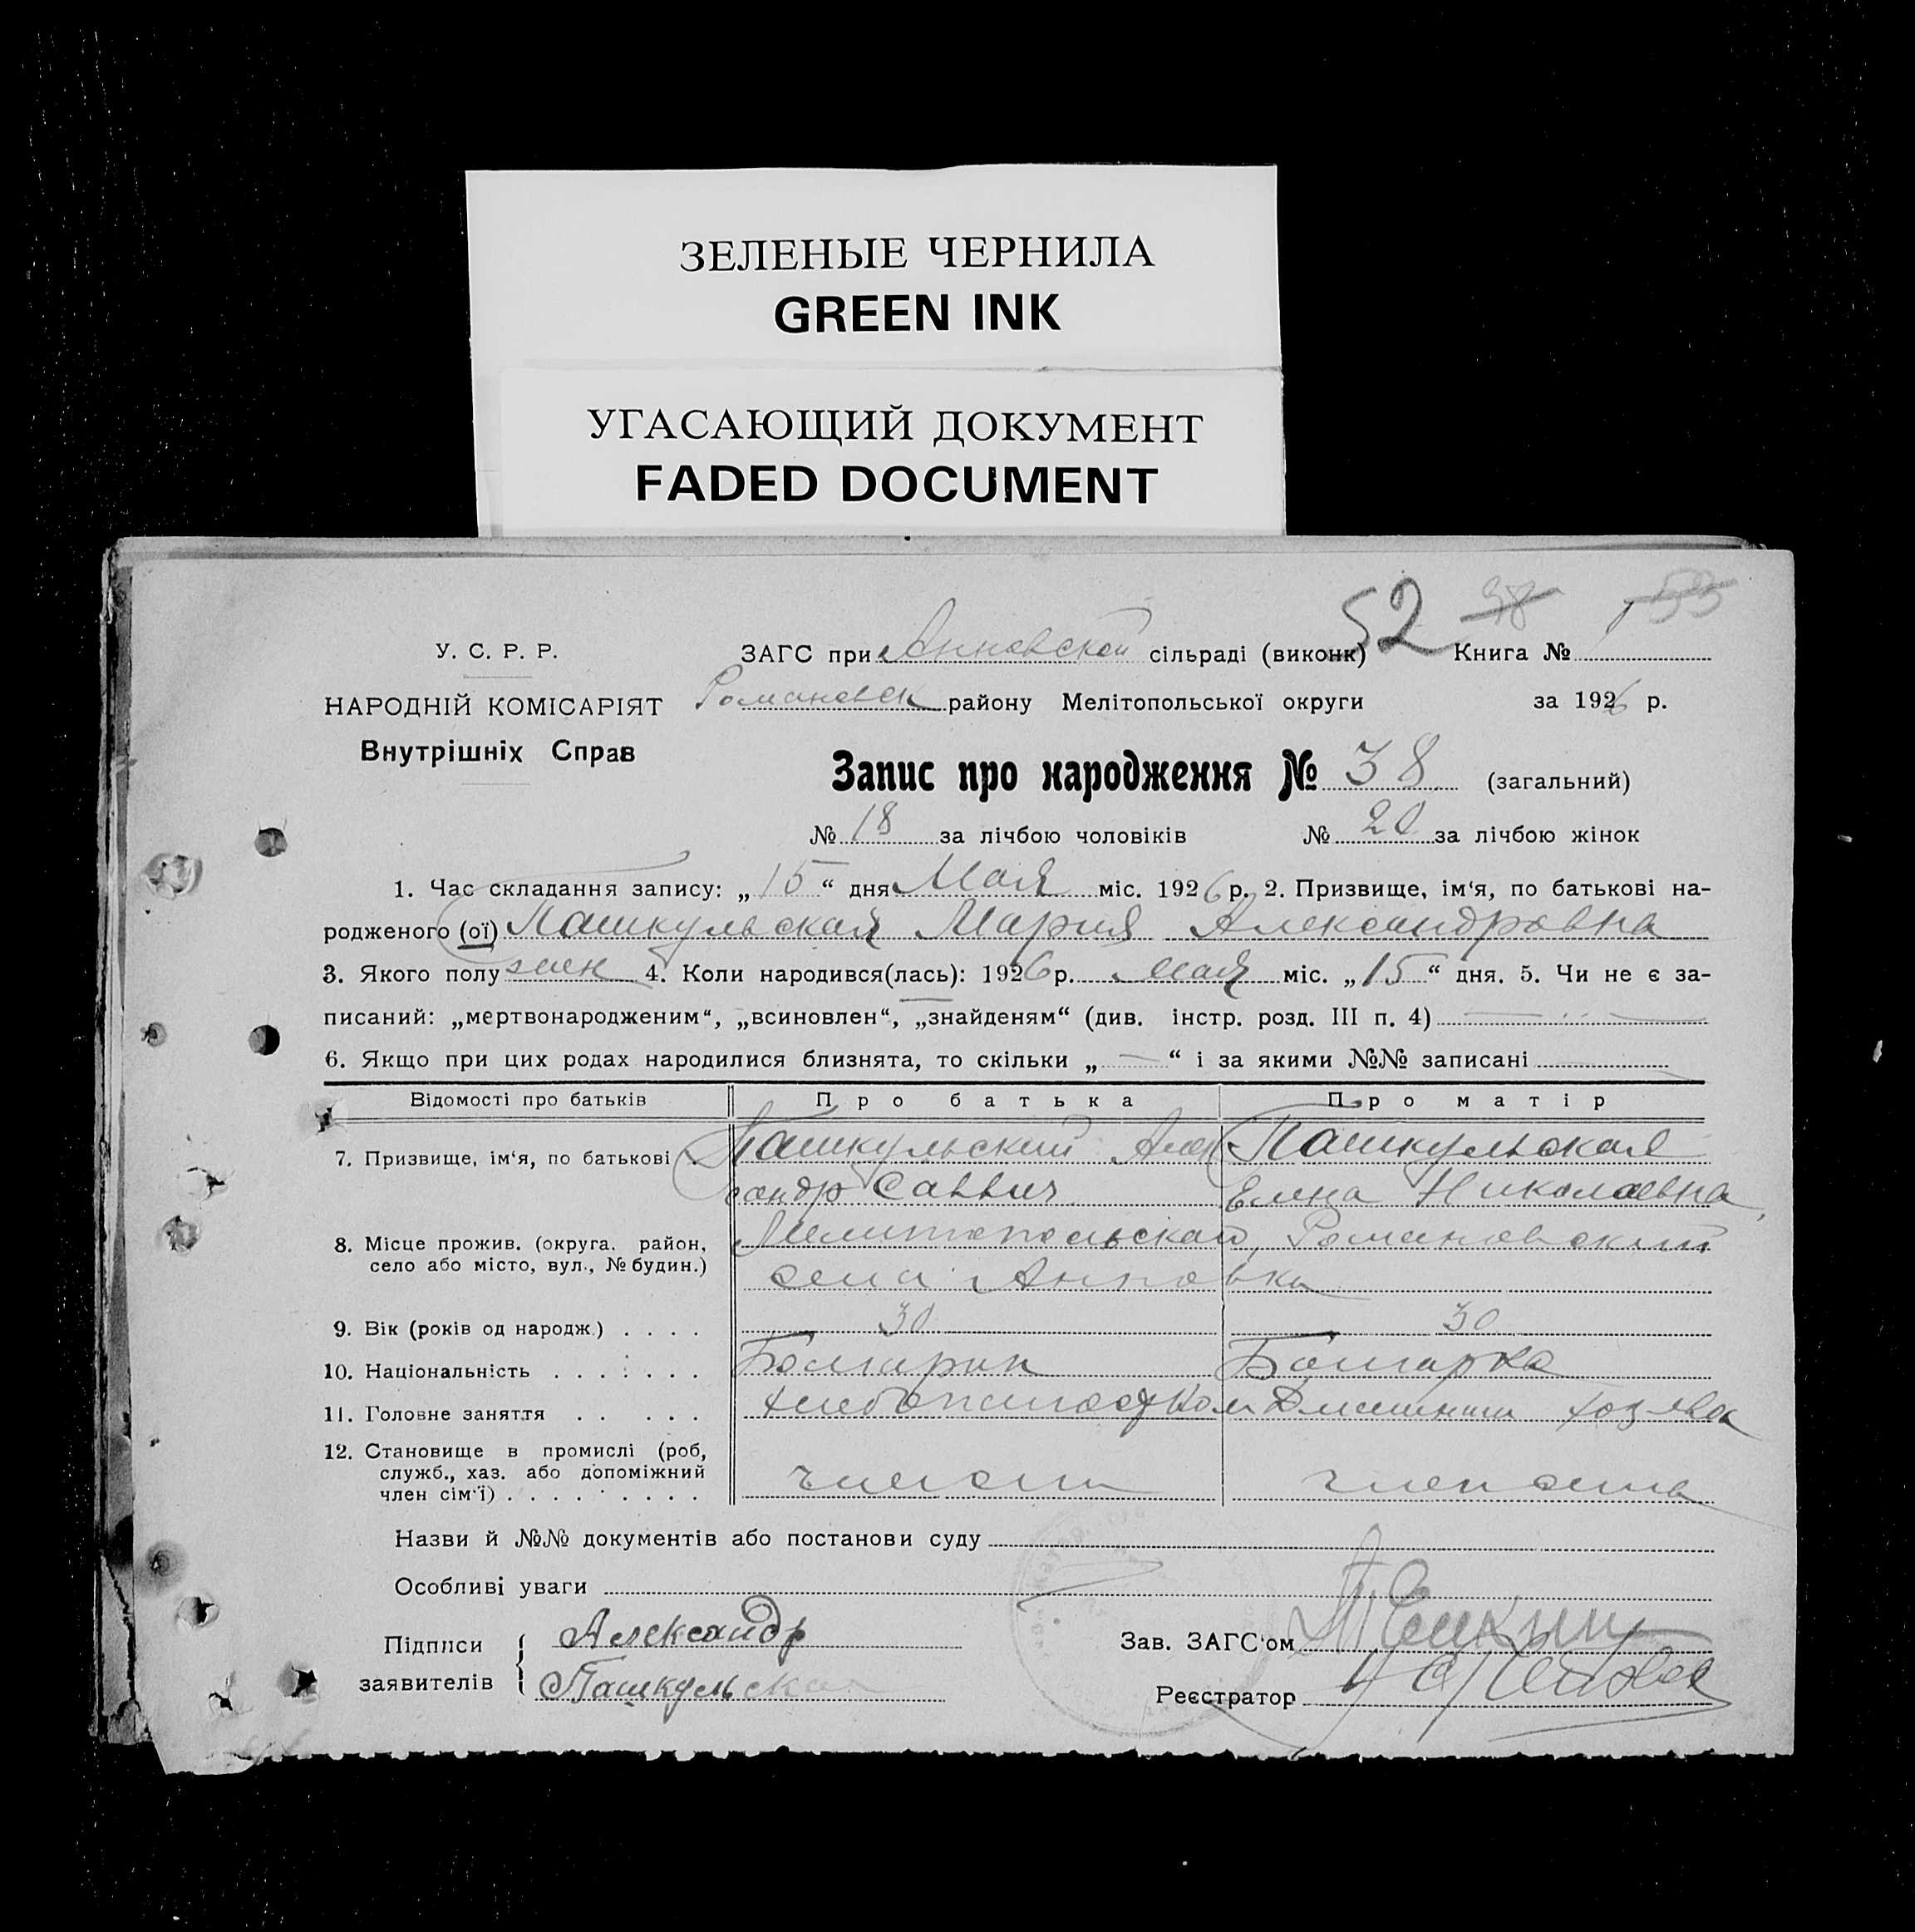 ЗЕЛЕНЫЕ ЧЕРНИЛА
GREEN INK
УГАСАЮЩИЙ ДОКУМЕНТ
FADED DOCUMENT
52 98 53
У. С. Р. Р.
НАРОДНІЙ КОМІСАРІЯТ
Внутрішніх Справ
ЗАГС при Анновской сільраді (виконк) Книга № 1
Романовск району Мелітопольської округи за 1926 р.
Запис про народження № 38 (загальний)
№ 18 за лічбою чоловіків № 20 за лічбою жінок
1. Час складання запису: „15“ дня Мая міс. 1926 р. 2. Призвище, ім‘я, по батькові на-
родженого (ої) Пашкульская Мария Александровна
3. Якого полу жен 4. Коли народився(лась): 1926 р. мая міс. „15“ дня. 5. Чи не є за-
писаний: „мертвонародженим“, „всиновлен“, „знайденям“ (див. інстр. розд. III п. 4)
6. Якщо при цих родах народилися близнята, то скільки „—“ і за якими №№ записані
Відомості про батьків Про батька Про матір
7. Призвище, ім‘я, по батькові Пашкульский Алек Пашкульская
сандр Саввич Елена Николаевна
8. Місце прожив. (округа, район, Мелитопольской, Романовский
село або місто, вул., № будин.) села Анновка
9. Вік (років од народж.) . . . . 30 30
10. Національність . . . . . . . Болгарин Болгарка
11. Головне заняття . . . . . Хлебопашеством Домашнем хозяйст
12. Становище в промислі (роб,
служб., хаз. або допоміжний
член сім‘ї) . . . . . . . . . член сем член семьи
Назви й №№ документів або постанови суду
Особливі уваги
Підписи Александр
заявителів Пашкульска
Зав. ЗАГС‘ом
Реєстратор